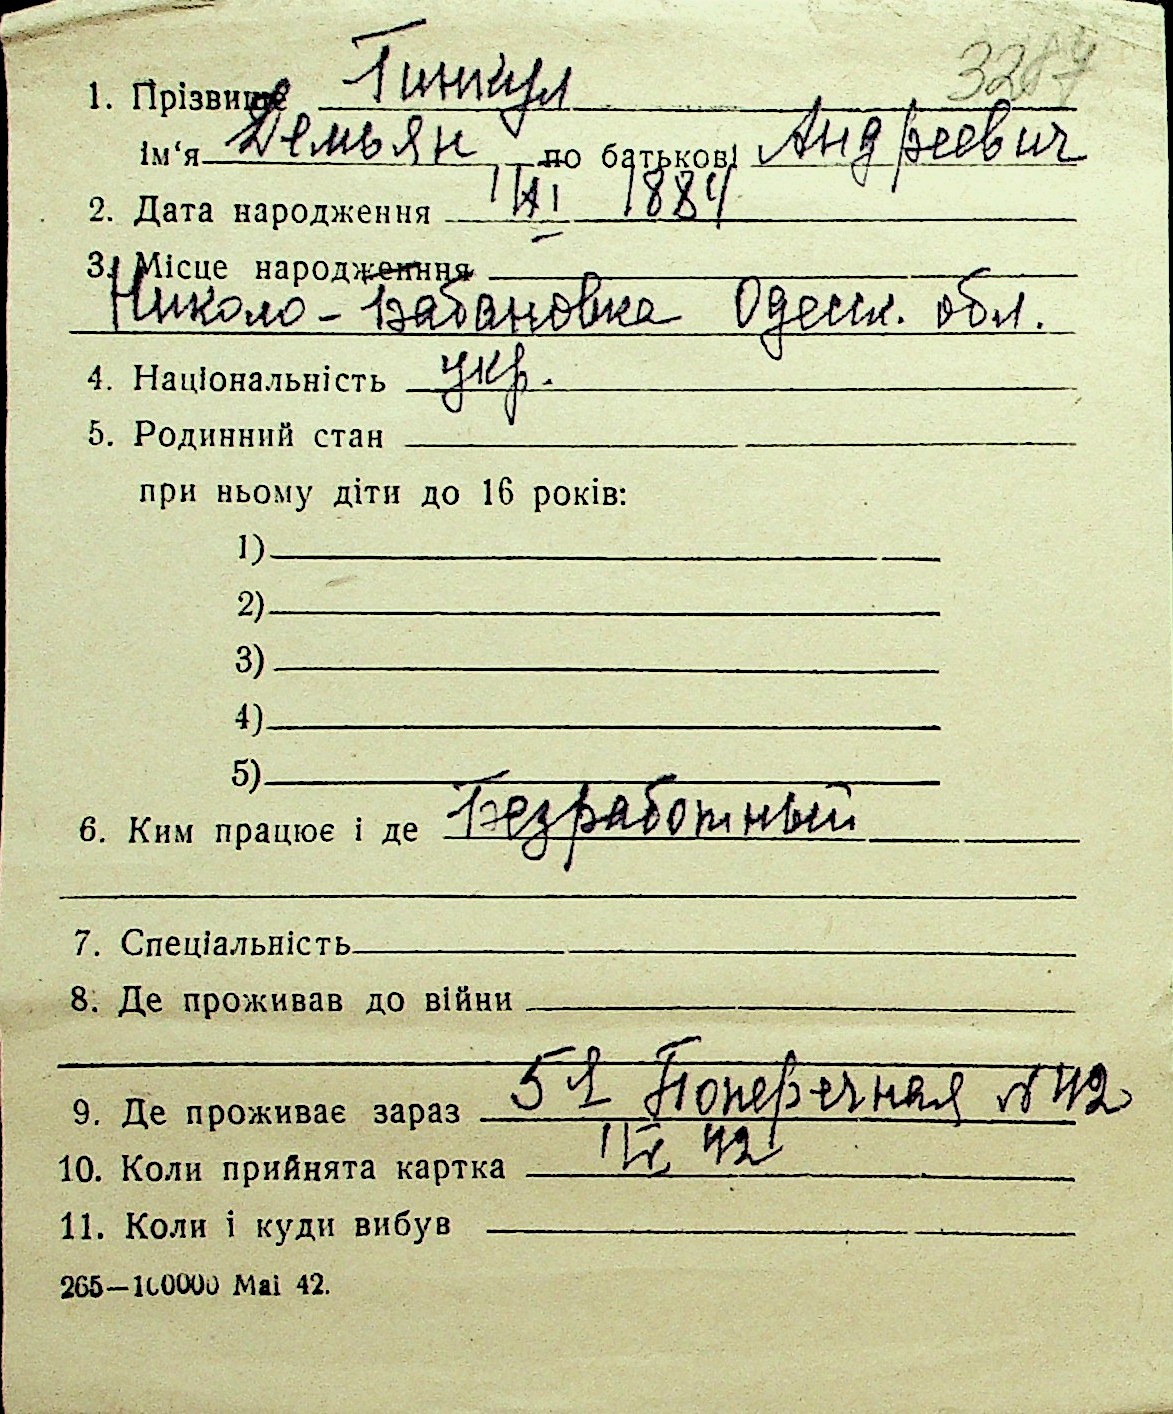 1. Прізвище Гинкул
ім'я Демьян по батькові Андреевич
2. Дата народження 1884
3. Місце народження
Николо-Бабановка Одесск. обл.
4. Національність укр.
5. Родинний стан
при ньому діти до 16 років:
1)
2)
3)
4)
5)
6. Ким працює і де Безработный
7. Спеціальність
8. Де проживав до війни
9. Де проживає зараз 5я Поперечная № 42
10. Коли прийнята картка 42
11. Коли і куди вибув
265—100000 Mai 42.